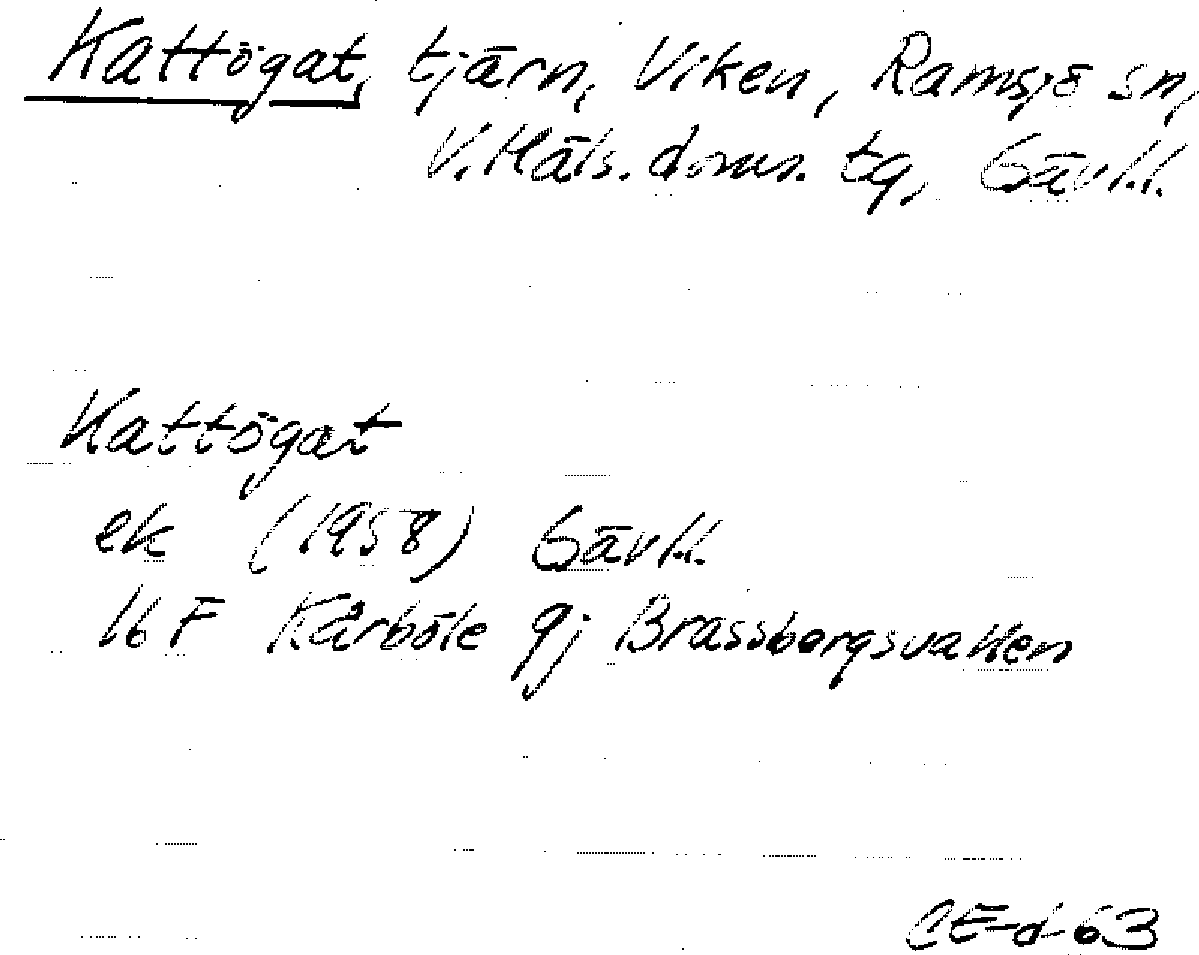 Kattögat, tjärn, Viken, Ramsjö sn,
V. Häls. doms. tg, Gävl.l.
Kattögat
ek (1958) Gävl.l.
16 F Kårböle 9j Brassbergsvallen
CE-d-63